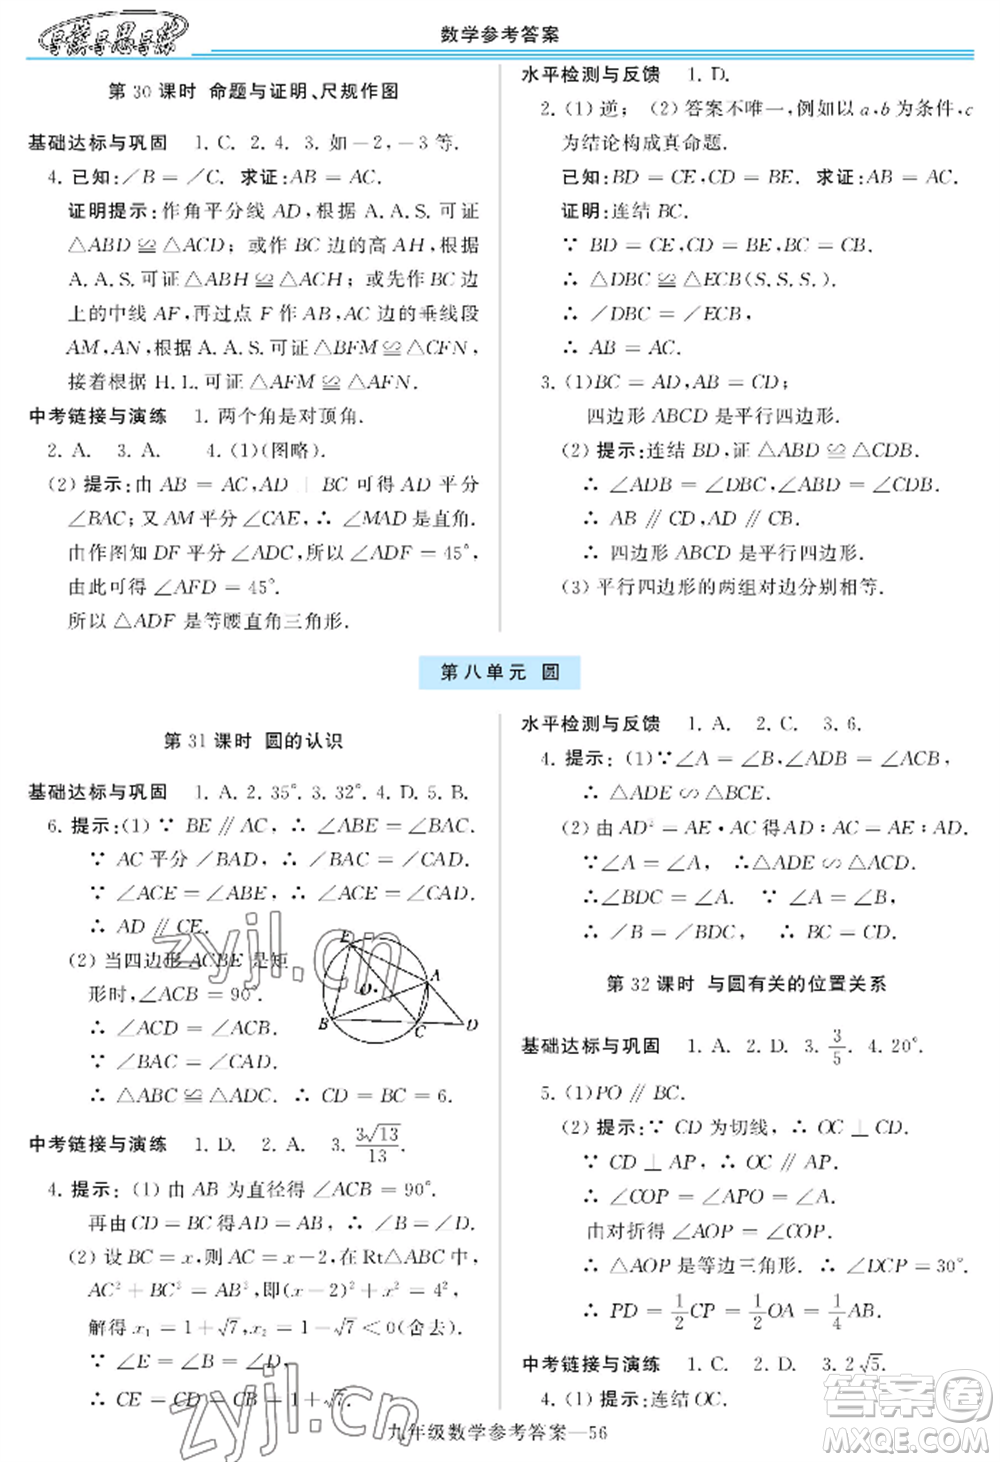 导学导思导练
数学参考答案
第 30 课时 命题与证明、尺规作图
基础达标与巩固 1. C. 2. 4. 3. 如－2，－3 等.
4. 已知：∠B ＝ ∠C. 求证：AB ＝ AC.
证明提示：作角平分线 AD，根据 A. A. S. 可证
△ABD ≌ △ACD；或作 BC 边的高 AH，根据
A. A. S. 可证 △ABH ≌ △ACH；或先作 BC 边
上的中线 AF，再过点 F 作 AB，AC 的垂线段
AM，AN，根据 A. A. S. 可证 △BFM ≌ △CFN，
接着根据 H. L. 可证 △AFM ≌ △AFN.
中考链接与演练 1. 两个角是对顶角.
2. A. 3. A. 4. (1)(图略).
(2) 提示：由 AB ＝ AC，AD ⊥ BC 可得 AD 平分
∠BAC；又 AM 平分 ∠CAE，∴ ∠MAD 是直角.
由作图知 DF 平分 ∠ADC，所以 ∠ADF ＝ 45°，
由此可得 ∠AFD ＝ 45°.
所以 △ADF 是等腰直角三角形.
水平检测与反馈 1. D.
2. (1) 逆； (2) 答案不唯一，例如以 a、b 为条件，c
为结论构成真命题.
已知：BD ＝ CE，CD ＝ BE. 求证：AB ＝ AC.
证明：连结 BC.
∵ BD ＝ CE，CD ＝ BE，BC ＝ CB.
∴ △DBC ≌ △ECB(S. S. S. ).
∴ ∠DBC ＝ ∠ECB，
∴ AB ＝ AC.
3. (1)BC ＝ AD，AB ＝ CD；
四边形 ABCD 是平行四边形.
(2) 提示：连结 BD，证 △ABD ≌ △CDB.
∴ ∠ADB ＝ ∠DBC，∠ABD ＝ ∠CDB.
∴ AB ∥ CD，AD ∥ BC.
∴ 四边形 ABCD 是平行四边形.
(3) 平行四边形的两组对边分别相等.
第八单元 圆
第 31 课时 圆的认识
基础达标与巩固 1. A. 2. 35°. 3. 32°. 4. D. 5. B.
6. 提示：(1) ∵ BE ∥ AC，∴ ∠ABE ＝ ∠BAC.
∵ AC 平分 ∠BAD，∴ ∠BAC ＝ ∠CAD.
∵ ∠ACE ＝ ∠ABE，∴ ∠ACE ＝ ∠CAD，
∴ AD ∥ CE.
(2) 当四边形 ACBE 是矩
形时，∠ACB ＝ 90°，
∴ ∠ACD ＝ ∠ACB.
∵ ∠BAC ＝ ∠CAD，
∴ △ABC ≌ △ADC. ∴ CD ＝ BC ＝ 6.
E
A
O
B
C
D
中考链接与演练 1. D. 2. A. 3. 3√13/13.
4. 提示：(1) 由 AB 为直径得 ∠ACB ＝ 90°.
再由 CD ＝ BC 得 AD ＝ AB，∴ ∠B ＝ ∠D.
(2) 设 BC ＝ x，则 AC ＝ x－2，在 Rt△ABC 中，
AC² ＋ BC² ＝ AB²，即(x－2)² ＋ x² ＝ 4²，
解得 x₁ ＝ 1＋√7，x₂ ＝ 1－√7 ＜ 0(舍去).
∵ ∠E ＝ ∠B ＝ ∠D，
∴ CE ＝ CD ＝ CB ＝ 1＋√7.
水平检测与反馈 1. A. 2. C. 3. 6.
4. 提示：(1)∵ ∠A ＝ ∠B，∠ADB ＝ ∠ACB，
∴ △ADE ∽ △BCE.
(2) 由 AD² ＝ AE · AC 得 AD ∶ AC ＝ AE ∶ AD.
∵ ∠A ＝ ∠A， ∴△ADE ∽ △ACD.
∴ ∠BDC ＝ ∠A. ∵ ∠A ＝ ∠B，
∴ ∠BDC ＝ ∠B， ∴ BC ＝ CD.
第 32 课时 与圆有关的位置关系
基础达标与巩固 1. A. 2. D. 3. 3/5. 4. 20°.
5. (1)PO ∥ BC.
(2) 提示：∵ CD 为切线，∴ OC ⊥ CD.
∵ CD ⊥ AP，∴ OC ∥ AP.
∴ ∠COP ＝ ∠APO ＝ ∠A.
由对折得 ∠AOP ＝ ∠COP，
∴ △AOP 是等边三角形. ∴ ∠DCP ＝ 30°.
∴ PD ＝ 1/2 CP ＝ 1/2 OA ＝ 1/4 AB.
中考链接与演练 1. C. 2. D. 3. 2√5.
4. (1) 提示：连结 OC.
九年级数学参考答案—56
zyjl.cn
zyjl.cn
答案圈
MXQE.COM